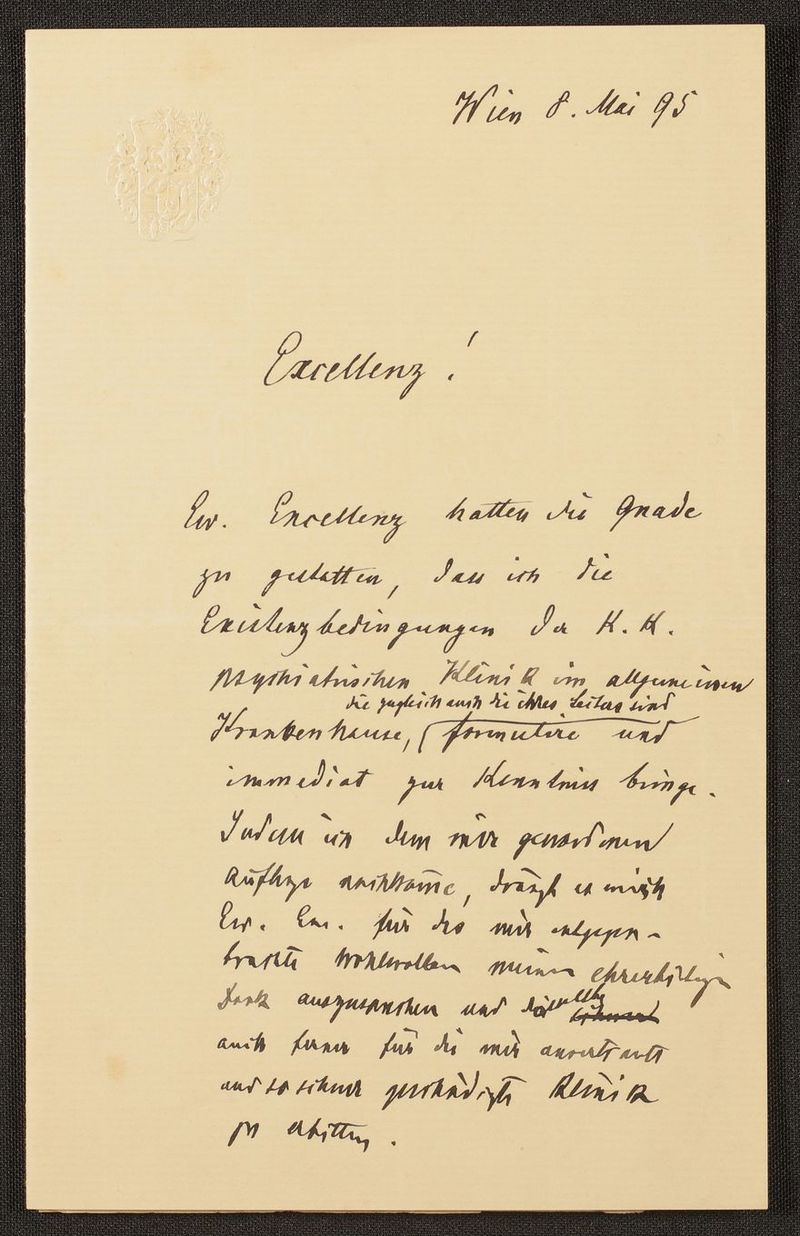 Wien 8. Mai 95
Excellenz!
Ew. Excellenz hatten die Gnade
zu gestatten, dass ich die
Existenzbedingungen der K. K.
psychiatrischen Klinik im allgemeinen
die zugleich auch die ihres Leiters sind
Krankenhause, formulire und
immediat zur Kenntniss bringe.
Indem ich dem mir gewordenen
Auftrage nachkomme, drängt es mich
Ew. Exc. für das mir entgegen-
brachte Wohlwollen meinen ehrerbietigen
Dank auszusprechen und dasselbe
auch ferner für die mir anvertraute
und so schwer geschädigte Klinik
zu erbitten.